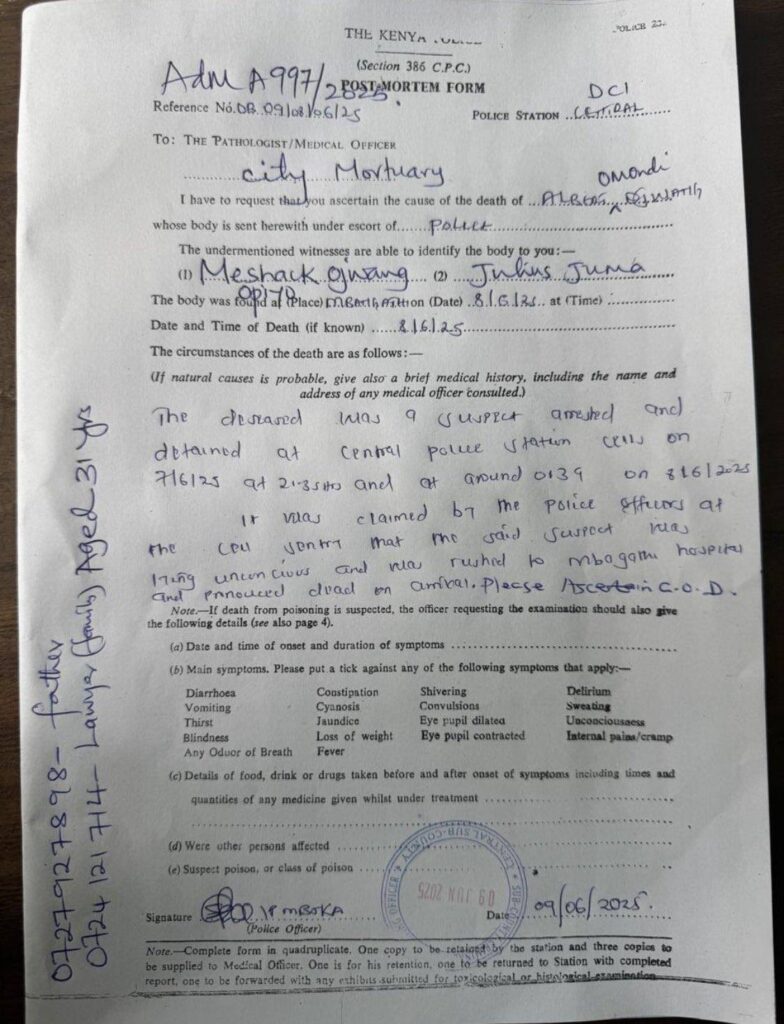 THE KENYA POLICE
POLICE 23
(Section 386 C.P.C.)
Adm A997/2025.
POST-MORTEM FORM
DCI
Reference No. OB 09/08/06/25
POLICE STATION ..CENTRAL.......
To: THE PATHOLOGIST/MEDICAL OFFICER
City Mortuary
Omondi
I have to request that you ascertain the cause of the death of ...ALBERT ^ OJWANG
whose body is sent herewith under escort of...... POLICE
The undermentioned witnesses are able to identify the body to you:—
(1) Meshack Ojwang (2) Julius Juma
The body was found at (Place) MBAGATHI on (Date) .8/6/25.. at (Time)
Date and Time of Death (if known) .....8/6/25
The circumstances of the death are as follows:—
(If natural causes is probable, give also a brief medical history, including the name and
address of any medical officer consulted.)
The deseased was a suspect arrested and
detained at central police station cells on
7/6/25 at 21.35hrs and at around 0139 on 8/6/2025
It was claimed by the police officers at
the cell sentry that the said suspect was
lying unconcious and was rushed to mbagathi hospital
and pronounced dead on arrival. Please Ascertain C.O.D.
Note.—If death from poisoning is suspected, the officer requesting the examination should also give
the following details (see also page 4).
(a) Date and time of onset and duration of symptoms
(b) Main symptoms. Please put a tick against any of the following symptoms that apply:—
Diarrhoea Constipation Shivering Delirium
Vomiting Cyanosis Convulsions Sweating
Thirst Jaundice Eye pupil dilated Unconciousness
Blindness Loss of weight Eye pupil contracted Internal pains/cramp
Any Oduor of Breath Fever
(c) Details of food, drink or drugs taken before and after onset of symptoms including times and
quantities of any medicine given whilst under treatment
(d) Were other persons affected
(e) Suspect poison, or class of poison
CENTRAL SUB-COUNTY
09 JUN 2025
Signature IP MBOKA
(Police Officer)
Date 09/06/2025.
Note.—Complete form in quadruplicate. One copy to be retained by the station and three copies to
be supplied to Medical Officer. One is for his retention, one to be returned to Station with completed
report, one to be forwarded with any exhibits submitted for toxicological or histological examination
0727927898 - father
0724 121 714 - Lawyer (family) Aged 31 yrs